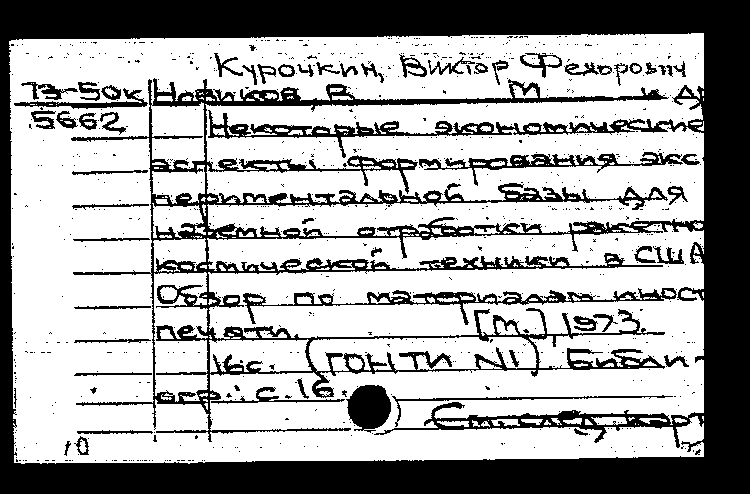 Курочкин, Виктор Федорович
73-50к Новиков, В М и др
5662 Некоторые экономические
аспекты формирования экс-
периментальной базы для
наземной отработки ракетно
космической техники в США
Обзор по материалам иност
печати. [М.], 1973.
16с. (ГОНТИ №1) Библи-
огр.: с.16.
См. след. карт
10